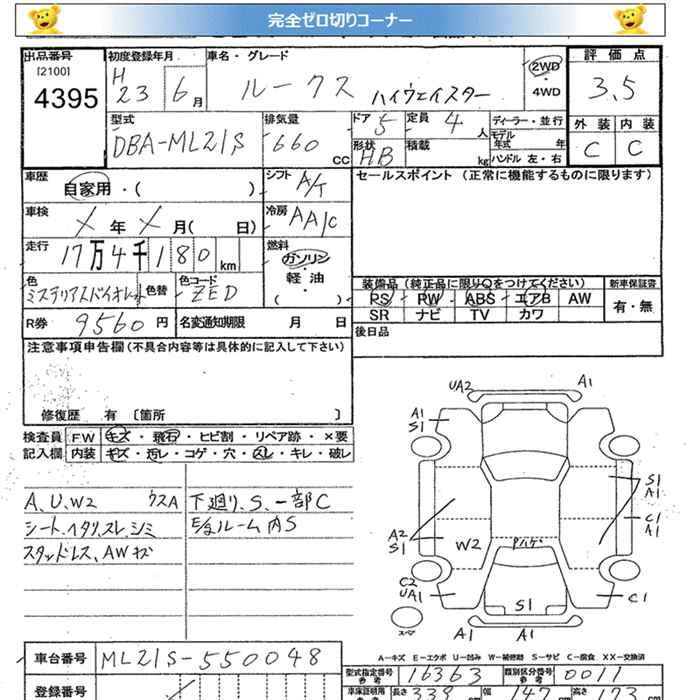 完全ゼロ切りコーナー
出品番号 初度登録年月 車名・グレード 評価点
[2100] H 2WD
4395 23 6月 ルークス ハイウェイスター 4WD 3.5
型式 排気量 ドア 5 定員 4人 ディーラー・並行 外装 内装
DBA-ML21S 660 CC 形状 HB 積載 kg モデル年式 年 C C
ハンドル 左・右
車歴 自家用・( ) シフト A/T セールスポイント (正常に機能するものに限ります)
車検 ╱年╱月( 日) 冷房 AA/C
走行 17万4千180km 燃料 ガソリン・軽油・( )
色 ミステリアスバイオレット 色替 色コード ZED 装備品(純正品に限り○をつけてください) 新車保証書
PS PW ABS エアB AW 有・無
R券 9560円 名変通知期限 月 日 SR ナビ TV カワ
注意事項申告欄(不具合内容等は具体的に記入して下さい) 後日品
修復歴 有 〔箇所 〕
検査員 FW キズ・飛石・ヒビ割・リペア跡・×要
記入欄 内装 キズ・汚レ・コゲ・穴・スレ・キレ・破レ
A、U、W2 ウスA 下廻り、S、一部C
シート、ヘタリ、スレ、シミ E/gルーム内S
スタッドレス、AWキズ
UA2 A1
A1
S1
S1
A1
C1
A1
A2
S1
W2
C2
UA1
C1
S1
A1 A1
A-キズ E-エクボ U-凹み W-補修跡 S-サビ C-腐食 XX-交換済
車台番号 ML21S-550048 型式指定番号 参考 16363 類別区分番号 参考 0011
登録番号 車庫証明用 長さ 339 幅 147 高さ 173